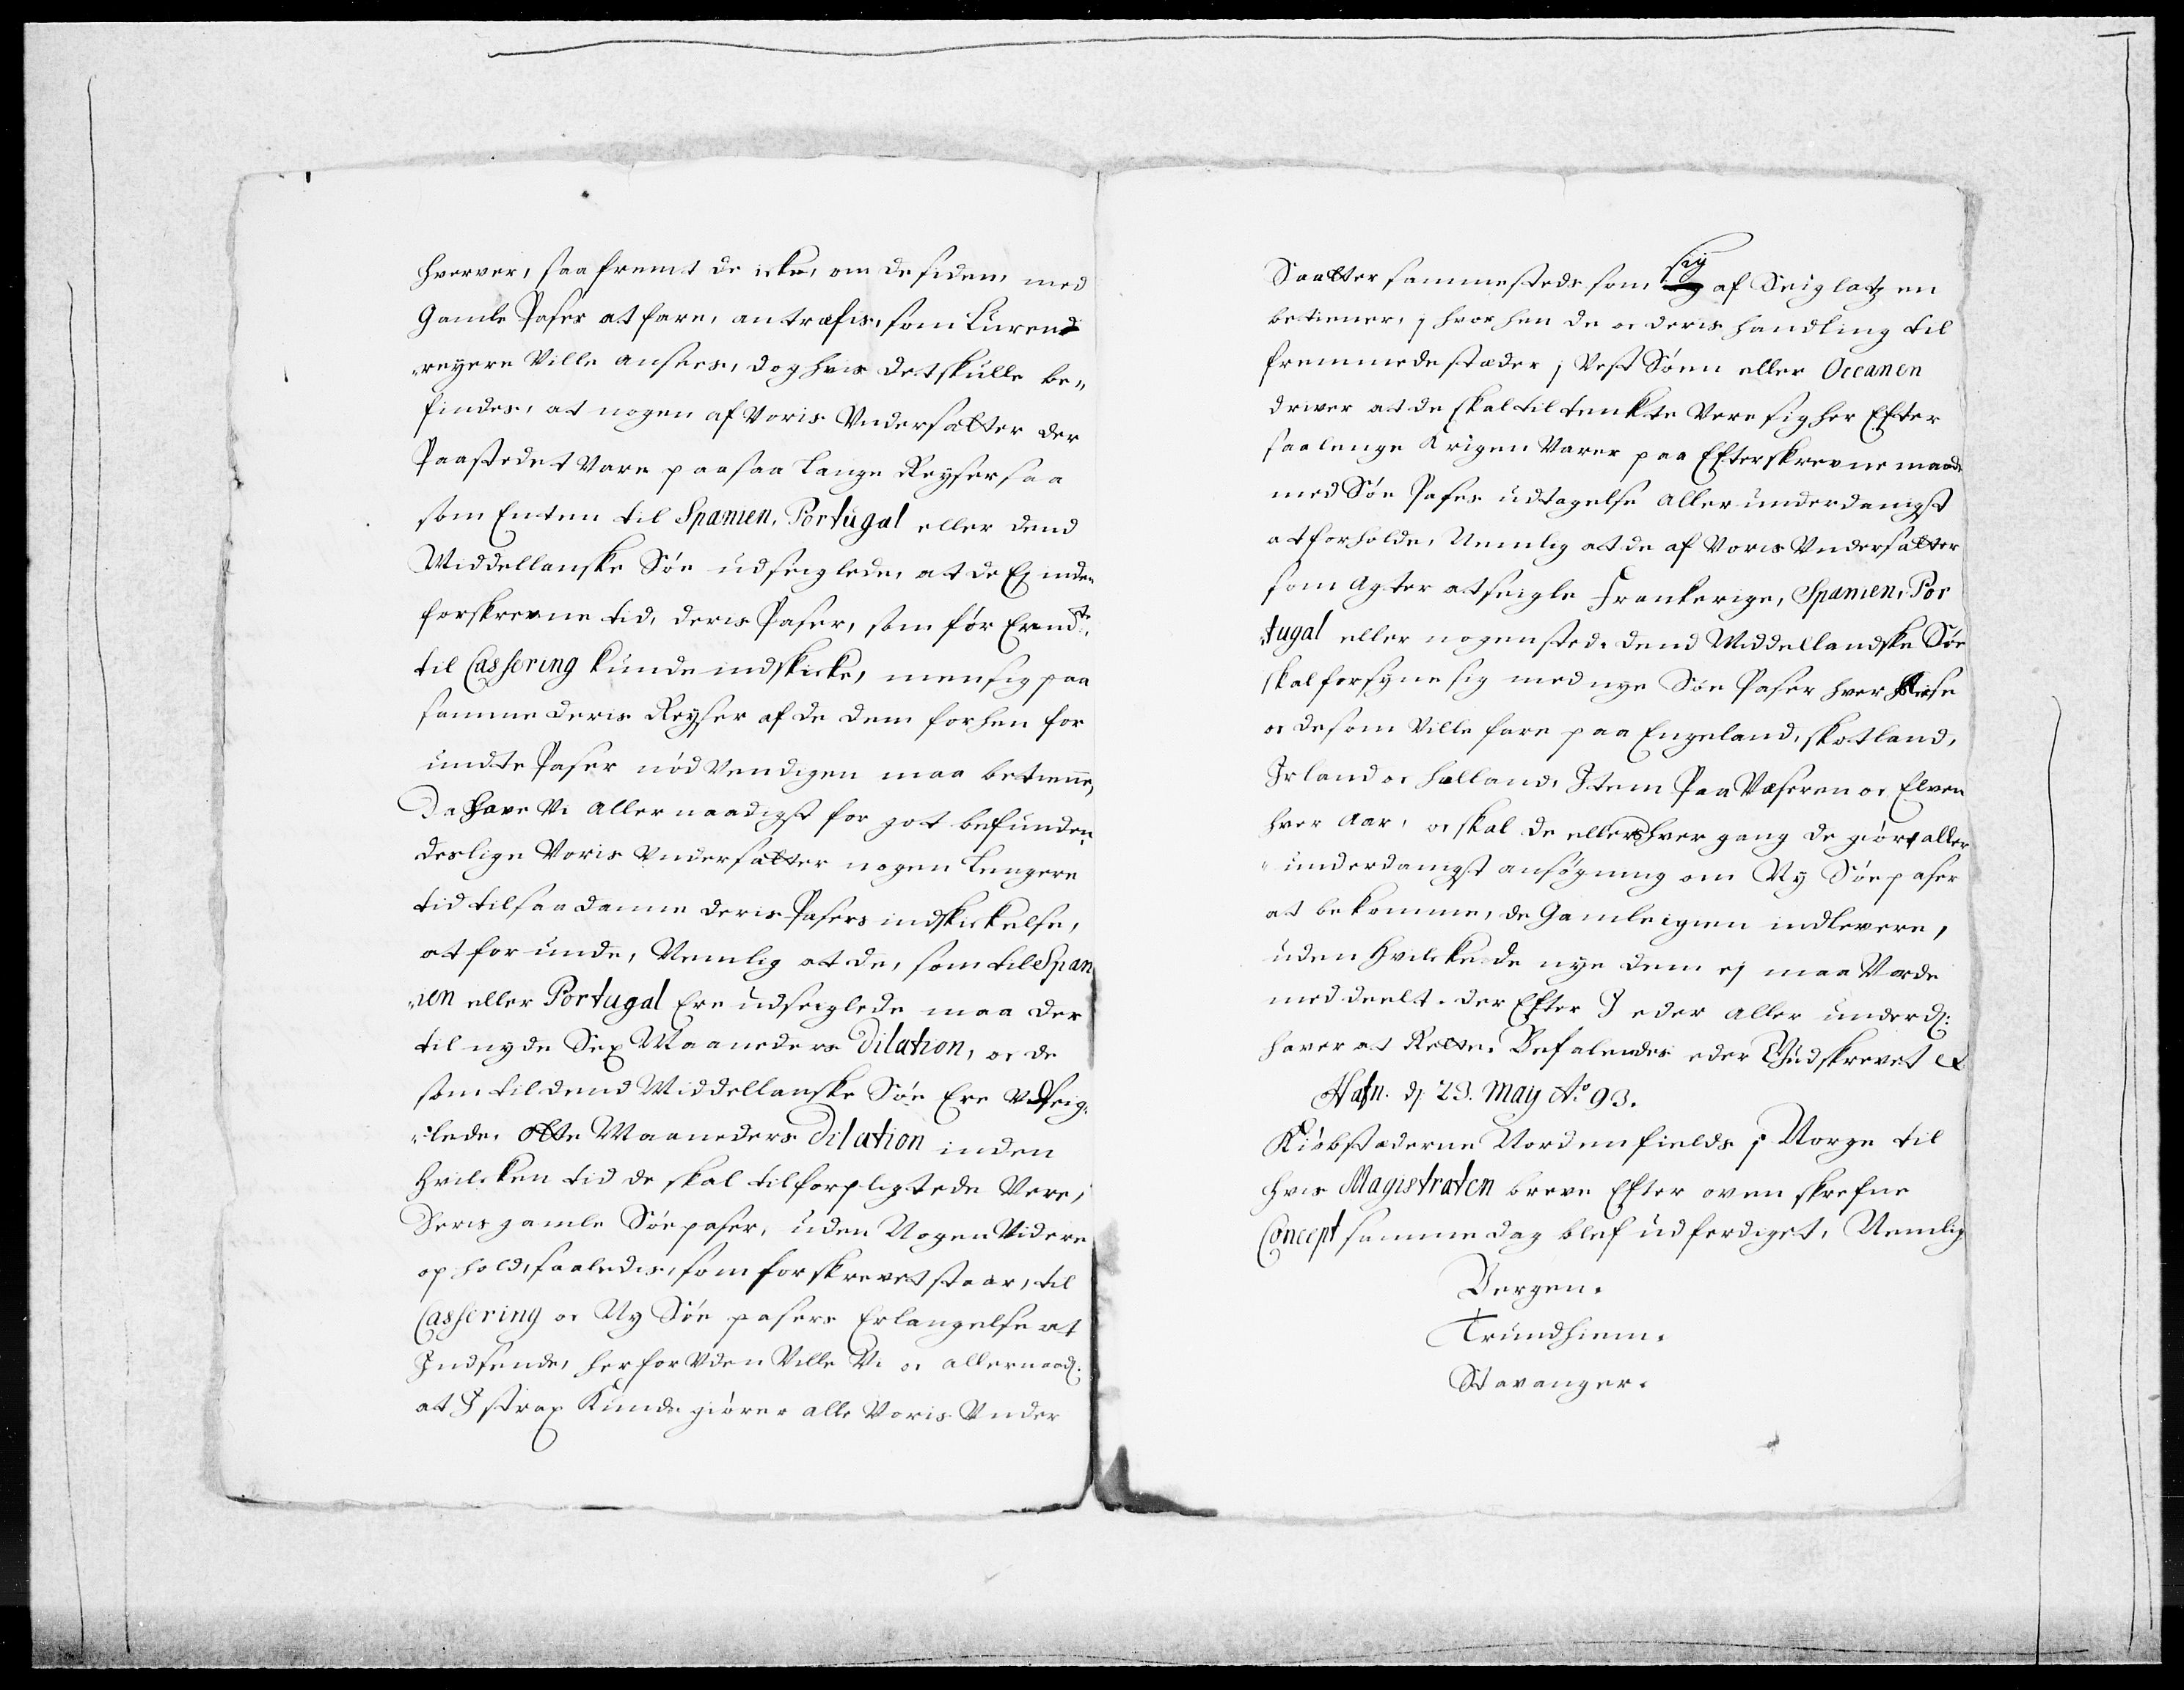 hverver, saafremt de icke, om de siden, med
Gamle Passer at fare, antræfis, som Lurend
„reyere Ville ansees, dog hvis det skulle be„
findes, at nogen af Voris Undersatter der
Paastedet Vare paa saa lange Reyser saa
som Enten til Spanien, Portugal eller dend
Middellanske Söe udseiglede, at de Ej inden
forskrevne tid, deris Passer, som för Er end te:
til Cassering kunde indskicke, men sig paa
samme deris Reyser af de dem forhen for
undte Passer nödvendigen maa betiene,
Da have Vi Allernaadigst for got befunden,
deslige Voris Undersatter nogen Lengere
tid til saadanne deris Passers indskickelse,
at forunde, Nemlig at de, som til Span
„ien eller Portugal Ere udseiglede maa der
til nyde Sex Maaneders Dilation, oc de
som til dend Middellanske Söe Ere Udseig„
„lede, Otte Maaneders Dilation inden
hvilcken tid de skal tilforpligtede Vere,
Deris gamle Söepasser, uden Nogen Videre
ophold, saaledis, som forskrevet staar, til
Cassering oc Ny Söe passers Erlangelse at
Indsende, herforuden Ville Vi oc allernaad:
at I strax Kundgiöre alle Voris Under
Saatter sammesteds som sig af Seiglatzen
betiener, j hvorhen de oc deris handling til
fremmede stæder j Vest Söen eller Occanen
driver at de skal tiltenckte Vere sig her Efter
saalenge Krigen Varer paa Efterskrevne maade
med Söe Passes udtagelse allerunderdanigst
at forholde, Nemlig at de af Voris Undersatter
som Agter at seigle Franckerige, Spanien, Por
„tugal eller nogensteds dend Middellandske Söe
skal forsyne sig med nye Söe Passer hver Reise
oc de som Ville fare paa Engeland, Skotland,
Irland oc Holland, Item Paa Wæseren oc Elven
hver Aar, oc skal de ellers hver gang de giöre aller
„underdanigst ansögning om Ny Söepasser
at bekomme, de Gamle igien indlevere,
uden hvilcke de nye dem ej maa Vorde
meddeelt. Der Efter I eder aller underd:
haver at Rette. Befalendis eder Gud skrevet &
Hafn. dj 23. May Ao 93.
Kiöbstæderne Nordenfields j Norge til
hvis Magistraten breve Efter ovenskrefne
Concept samme dag blef udferdiget, Nemlig
Bergen.
Trundhiem.
Stavanger.